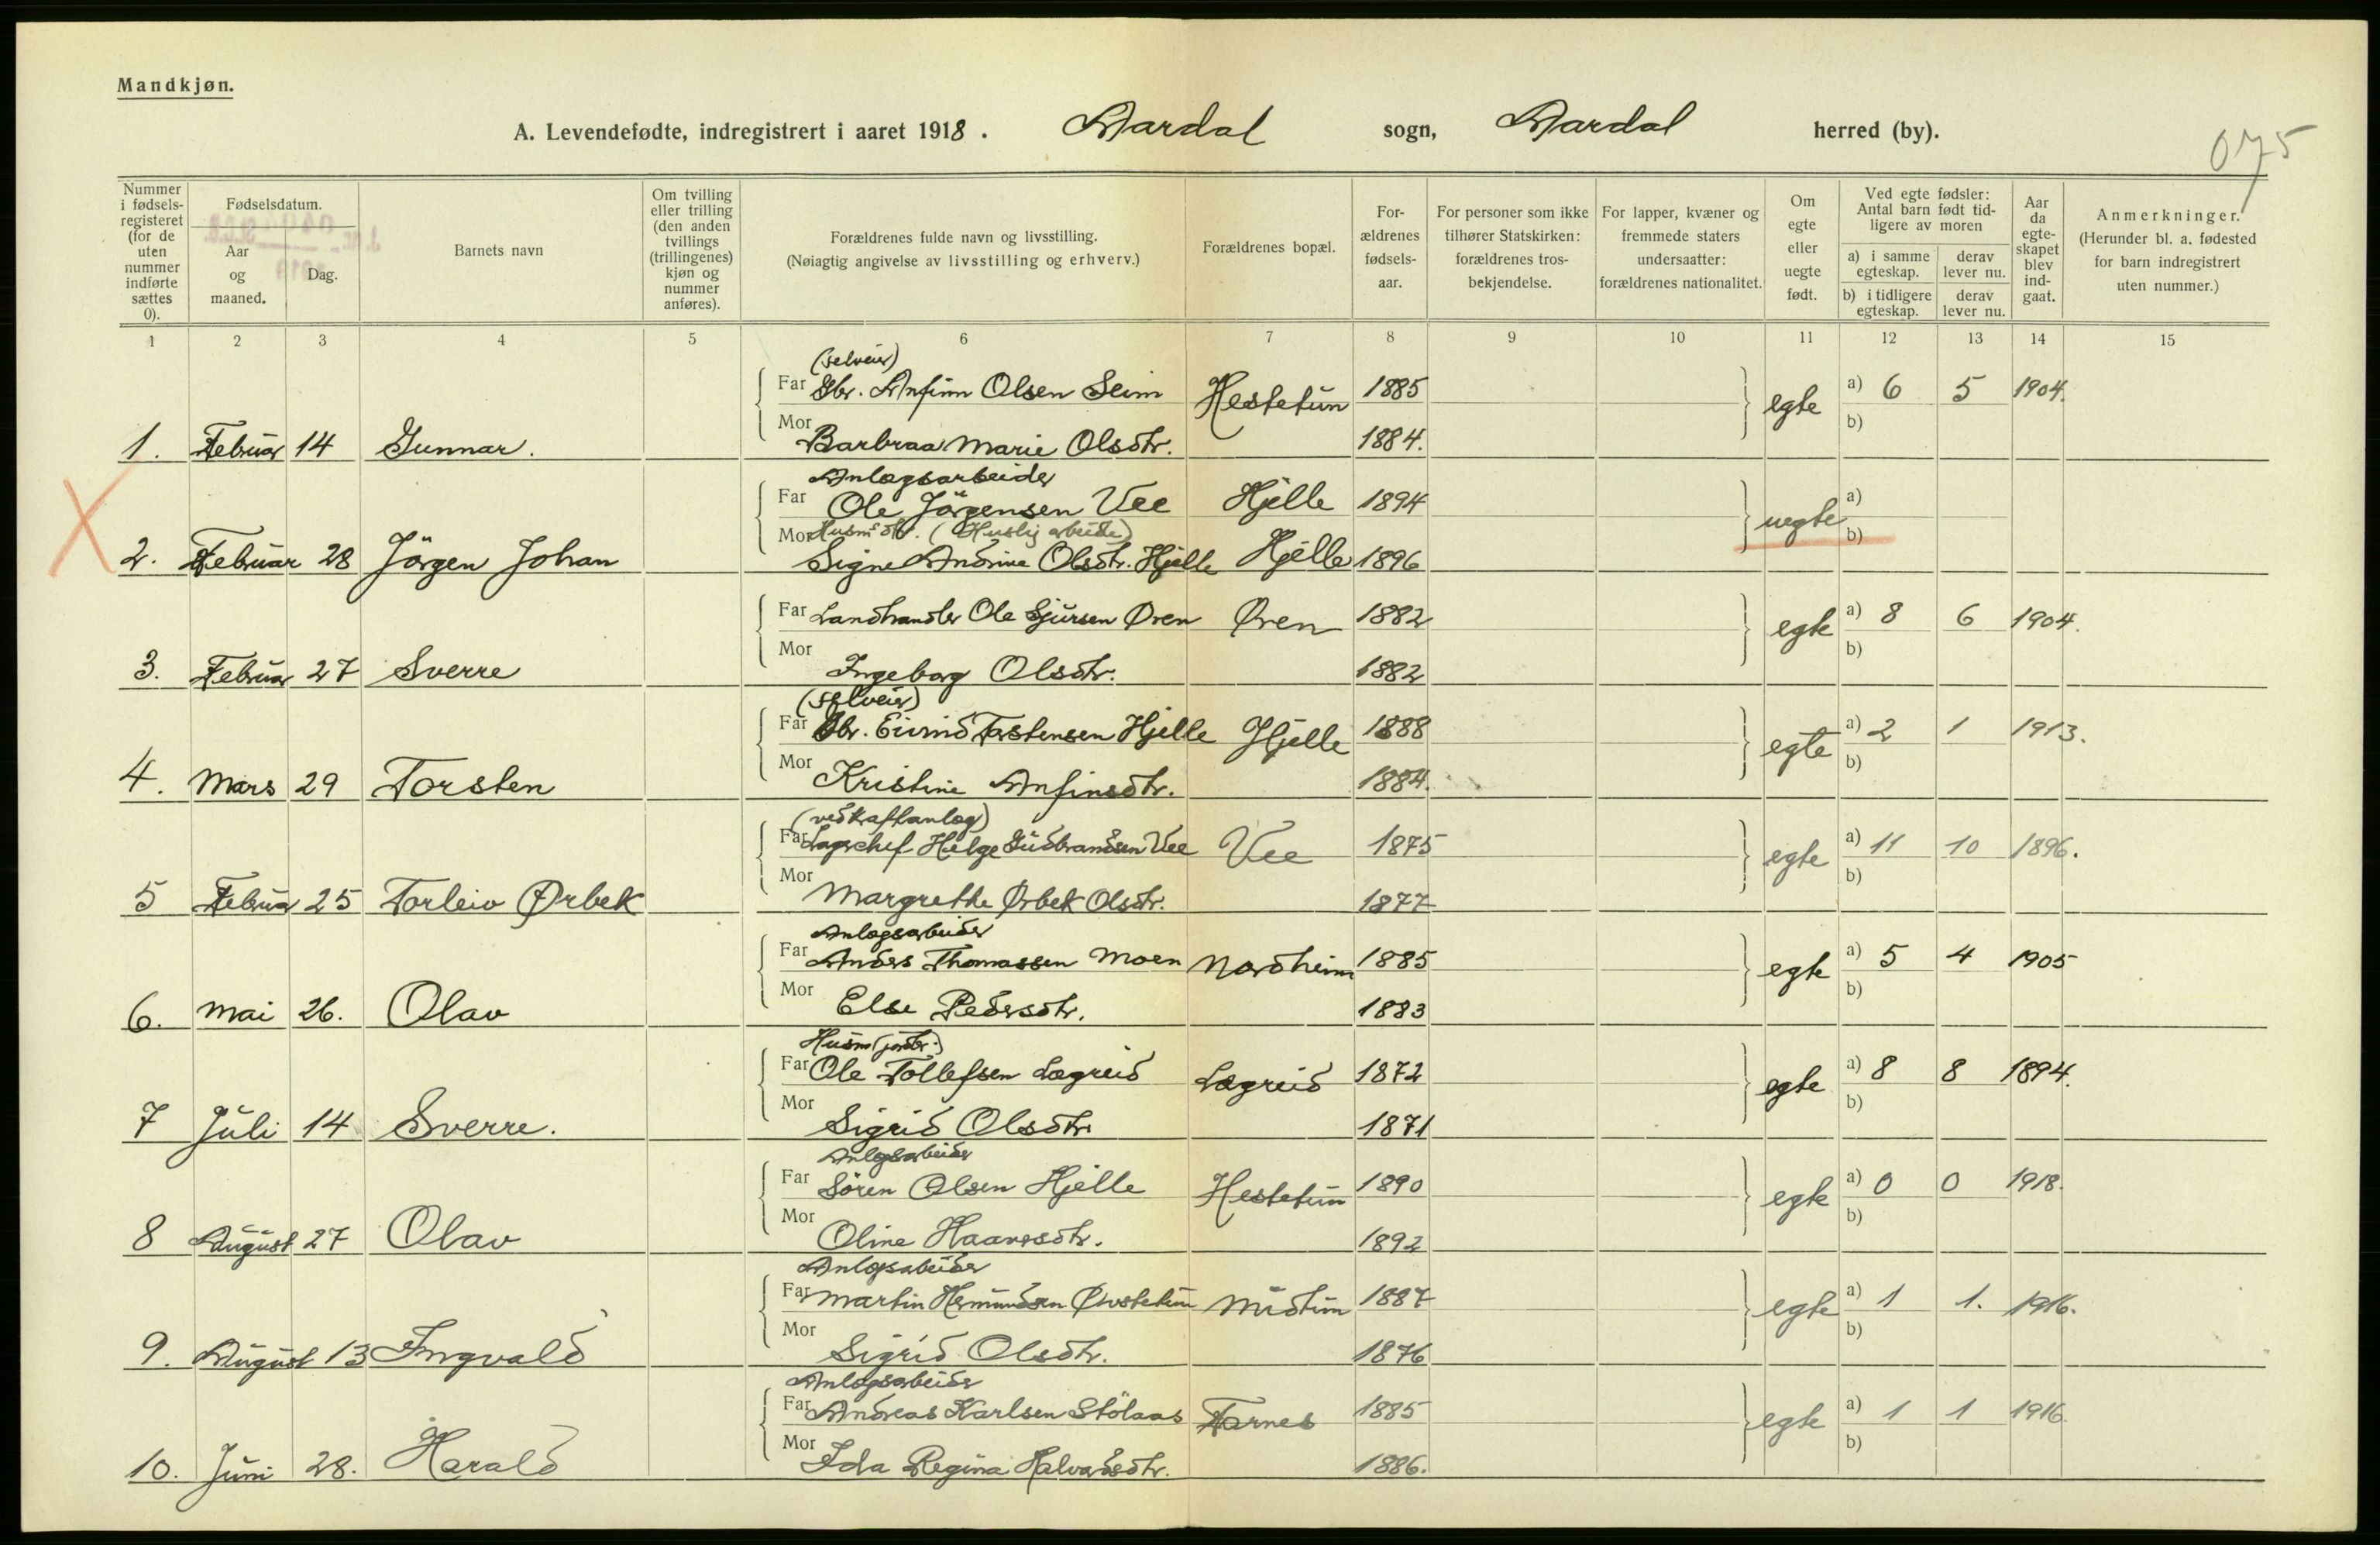 Mandkjøn.
A. Levendefødte, indregistrert i aaret 1918. Aardal sogn, Aardal herred (by).
075
Nummer i fødsels-registeret (for de uten nummer indførte sættes 0).
Fødselsdatum.
Aar og maaned.
Dag.
Barnets navn
Om tvilling eller trilling (den anden tvillings (trillingenes) kjøn og nummer anføres).
Forældrenes fulde navn og livsstilling.
(Nøiagtig angivelse av livsstilling og erhverv.)
Forældrenes bopæl.
For-ældrenes fødsels-aar.
For personer som ikke tilhører Statskirken: forældrenes tros-bekjendelse.
For lapper, kvæner og fremmede staters undersaatter: forældrenes nationalitet.
Om egte eller uegte født.
Ved egte fødsler: Antal barn født tid-ligere av moren
a) i samme egteskap.
derav lever nu.
b) i tidligere egteskap.
derav lever nu.
Aar da egte-skapet blev ind-gaat.
Anmerkninger.
(Herunder bl. a. fødested for barn indregistrert uten nummer.)
1 2 3 4 5 6 7 8 9 10 11 12 13 14 15
(selveier)
Far Gbr. Anfinn Olsen Seim Hestetun 1885 egte a) 6 5 1904.
1. Februar 14 Gunnar. Mor Barbraa Marie Olsdtr. 1884. b)
Anlægsarbeider
Far Ole Jörgensen Vee Hjelle 1894 uegte a)
Husmsdtr. (Huslig arbeide)
2. Februar 28 Jörgen Johan Mor Signe Andrine Olsdtr. Hjelle Hjelle 1896 b)
Far Landhandler Ole Sjursen Øren Øren 1882 egte a) 8 6 1904.
3. Februar 27 Sverre Mor Ingeborg Olsdtr. 1882 b)
(selveier)
Far Gbr. Eivind Torstensen Hjelle Hjelle 1888 egte a) 2 1 1913.
4. Mars 29 Torsten Mor Kristine Anfinsdtr. 1884. b)
(ved kraftanlæg)
Far Lagerchef Helge Gudbrandsen Vee Vee 1875 egte a) 11 10 1896.
5 Februar 25 Torleiv Ørbek Mor Margrethe Ørbek Olsdtr. 1877 b)
Anlægsarbeider
Far Anders Thomassen Moen Nordheim 1885 egte a) 5 4 1905
6. Mai 26. Olav Mor Else Pedersdtr. 1883 b)
Husm (jordbr.)
Far Ole Tollefsen Lægreid Lægreid 1872 egte a) 8 8 1894.
7 Juli 14 Sverre. Mor Sigrid Olsdtr. 1871 b)
Anlægsarbeider
Far Sören Olsen Hjelle Hestetun 1890 egte a) 0 0 1918.
8 August 27 Olav Mor Oline Haavrsdtr. 1892 b)
Anlægsarbeider
Far Martin Hermundsen Øvstetun Midtun 1887 egte a) 1 1. 1916.
9. August 13 Ingvald Mor Sigrid Olsdtr. 1876 b)
Anlægsarbeider
Far Andreas Karlsen Stölaas Farnes 1885 egte a) 1 1 1916.
10. Juni 28. Harald Mor Ida Regina Halvardsdtr. 1886. b)